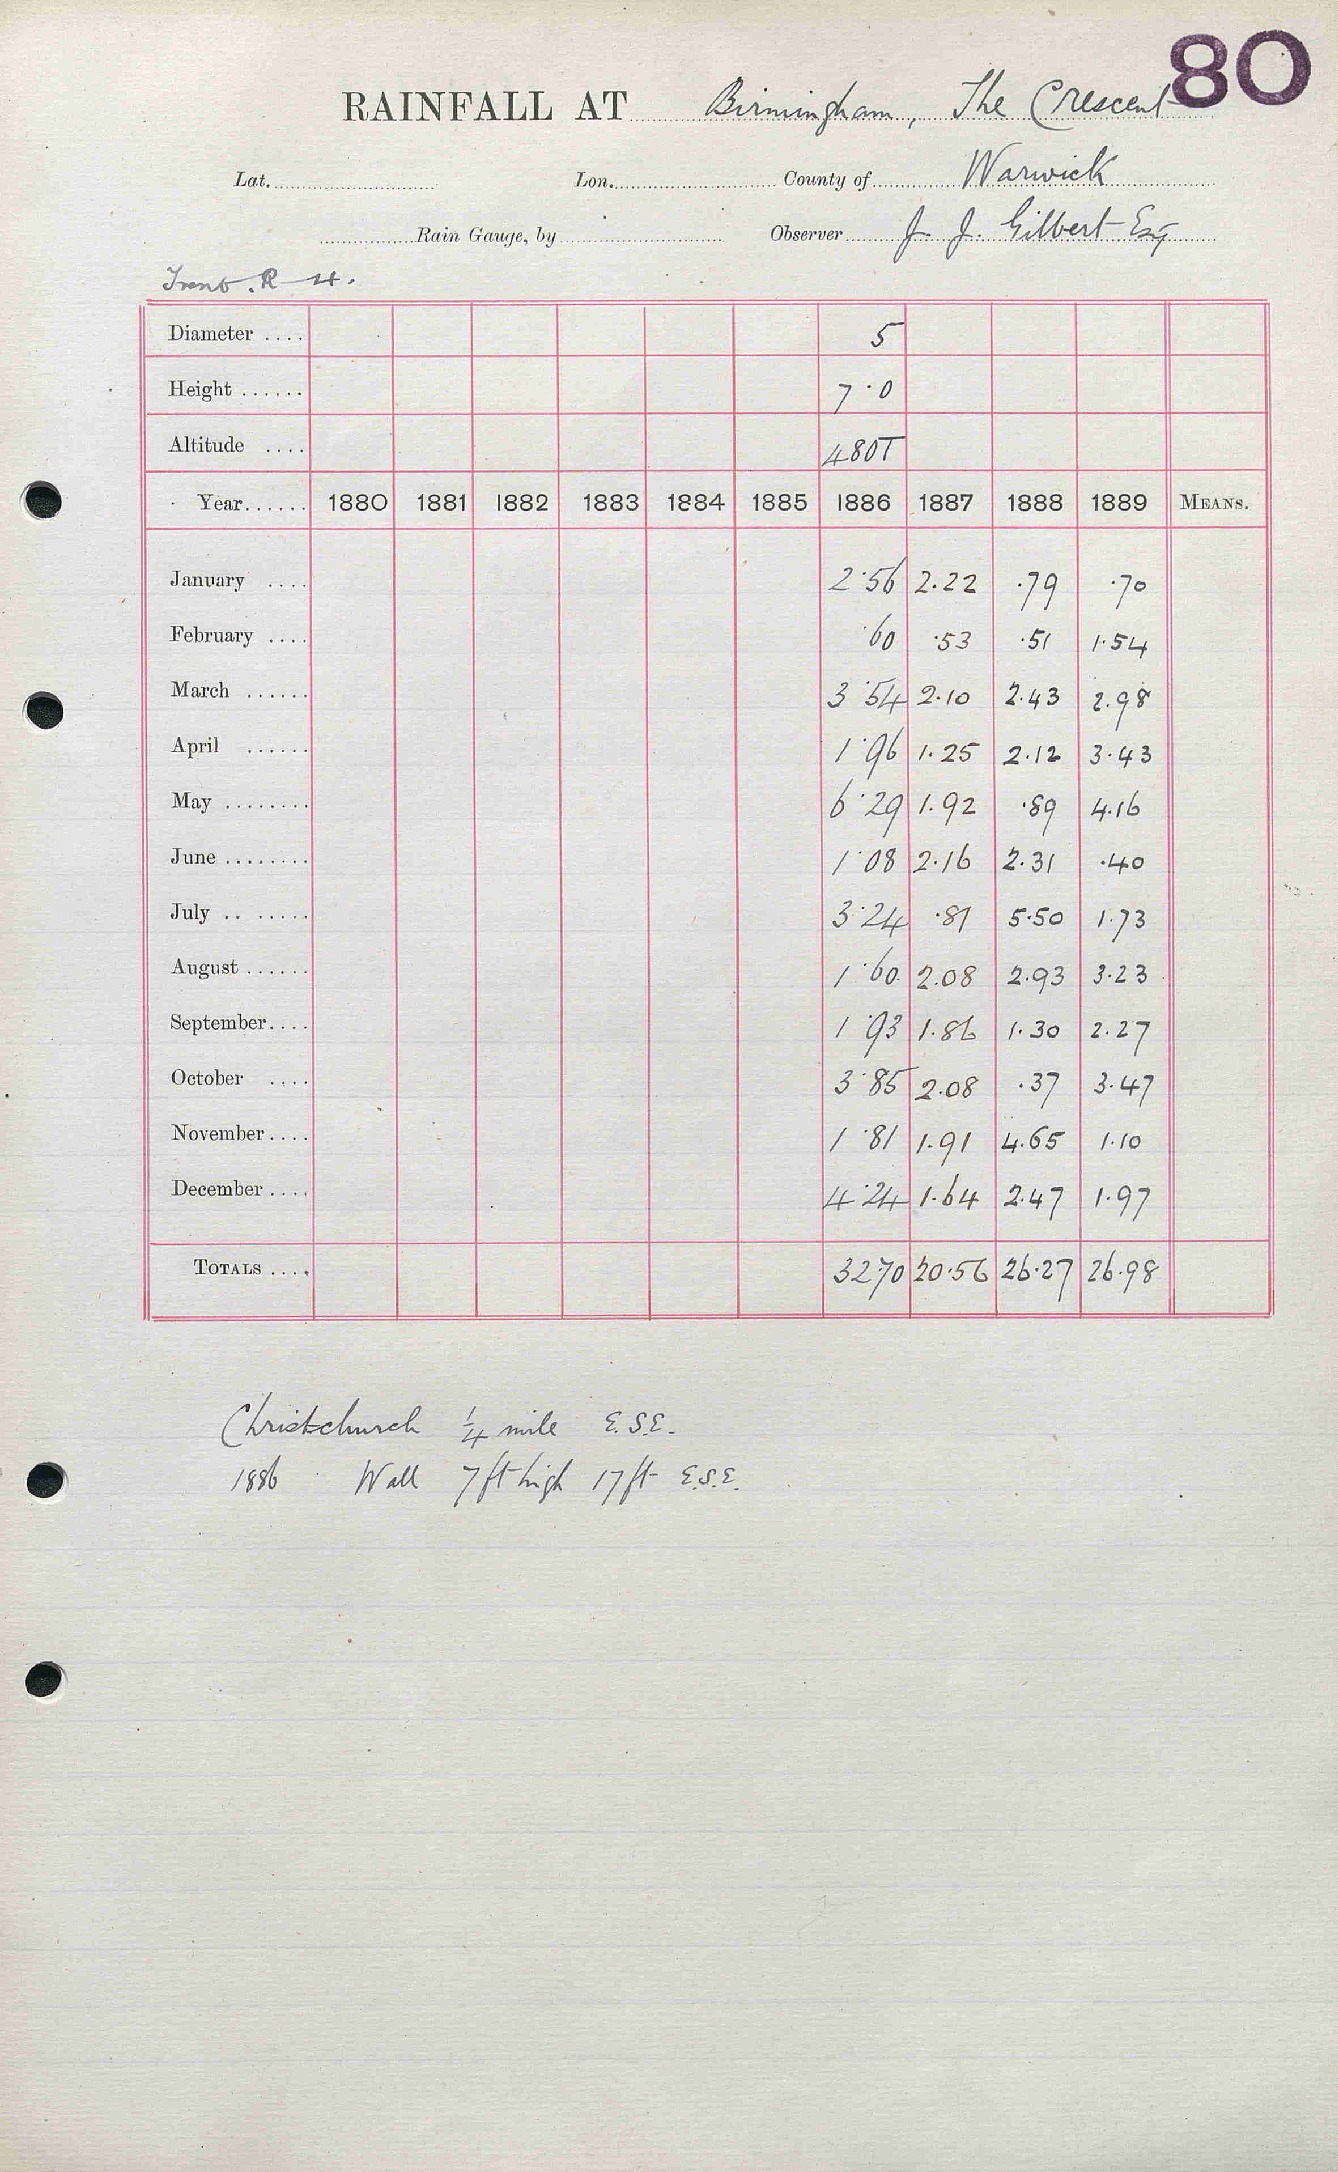 80
RAINFALL AT Birmingham, The Crescent
Lat. Lon. County of Warwick
Rain Gauge, by Observer J. J. Gilbert Esq
Trent. R 4.
Diameter .... 5
Height ...... 7·0
Altitude .... 480T
Year...... 1880 1881 1882 1883 1884 1885 1886 1887 1888 1889 MEANS.
January .... 2·56 2.22 ·79 ·70
February .... ·60 ·53 ·51 1·54
March ...... 3·54 2·10 2·43 2.98
April ...... 1·96 1·25 2·12 3·43
May ........ 6·29 1.92 ·89 4.16
June ........ 1·08 2·16 2·31 ·40
July .. ..... 3·24 ·81 5·50 1·73
August ...... 1·60 2.08 2.93 3·23
September.... 1·93 1.86 1·30 2·27
October .... 3·85 2.08 ·37 3·47
November.... 1·81 1·91 4.65 1·10
December .... 4·24 1·64 2·47 1·97
TOTALS .... 32·70 20·56 26·27 26·98
Christchurch 1/4 mile E.S.E.
1886 Wall 7ft high 17ft E.S.E.